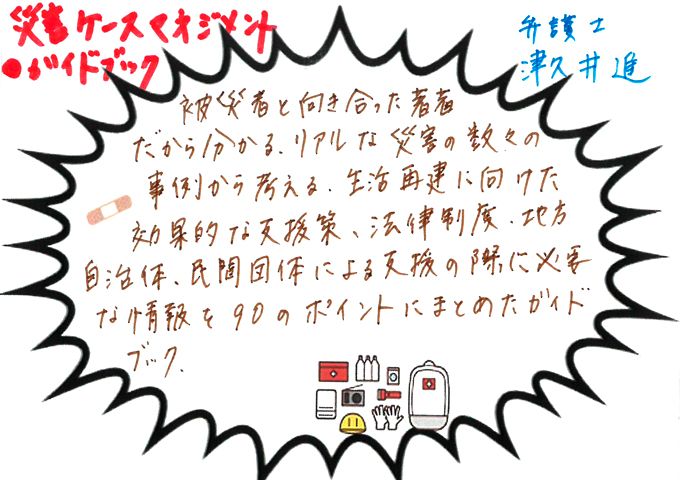 災害ケースマネジメント
●ガイドブック
弁護士
津久井進
被災者と向き合った著者
だから分かる、リアルな災害の数々の
事例から考える、生活再建に向けた
効果的な支援策、法律制度、地方
自治体、民間団体による支援の際に必要
な情報を90のポイントにまとめたガイド
ブック。